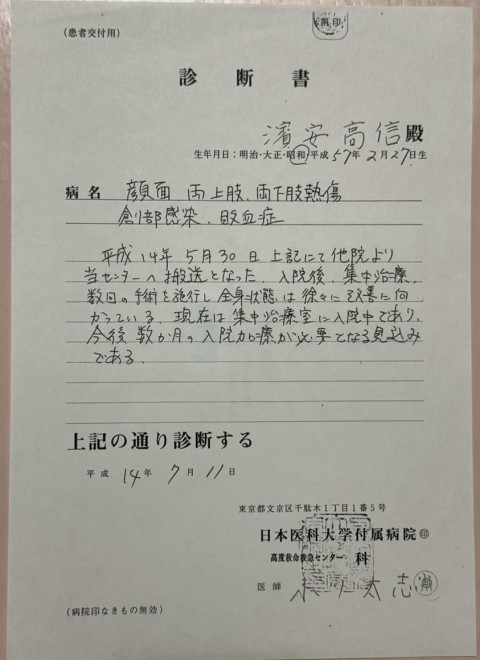 (患者交付用)
診断書
濱安高信殿
生年月日:明治・大正・昭和・平成57年2月27日生
病名 顔面 両上肢、両下肢熱傷
創部感染、敗血症
平成14年5月30日上記にて他院より
当センターへ搬送となった。入院後、集中治療、
数回の手術を施行し全身状態は徐々に改善に向
かっている。現在は集中治療室に入院中であり、
今後数か月の入院加療が必要となる見込み
である。
上記の通り診断する
平成14年7月11日
東京都文京区千駄木1丁目1番5号
日本医科大学付属病院 印
高度救命救急センター 科
医師
(病院印なきもの無効)